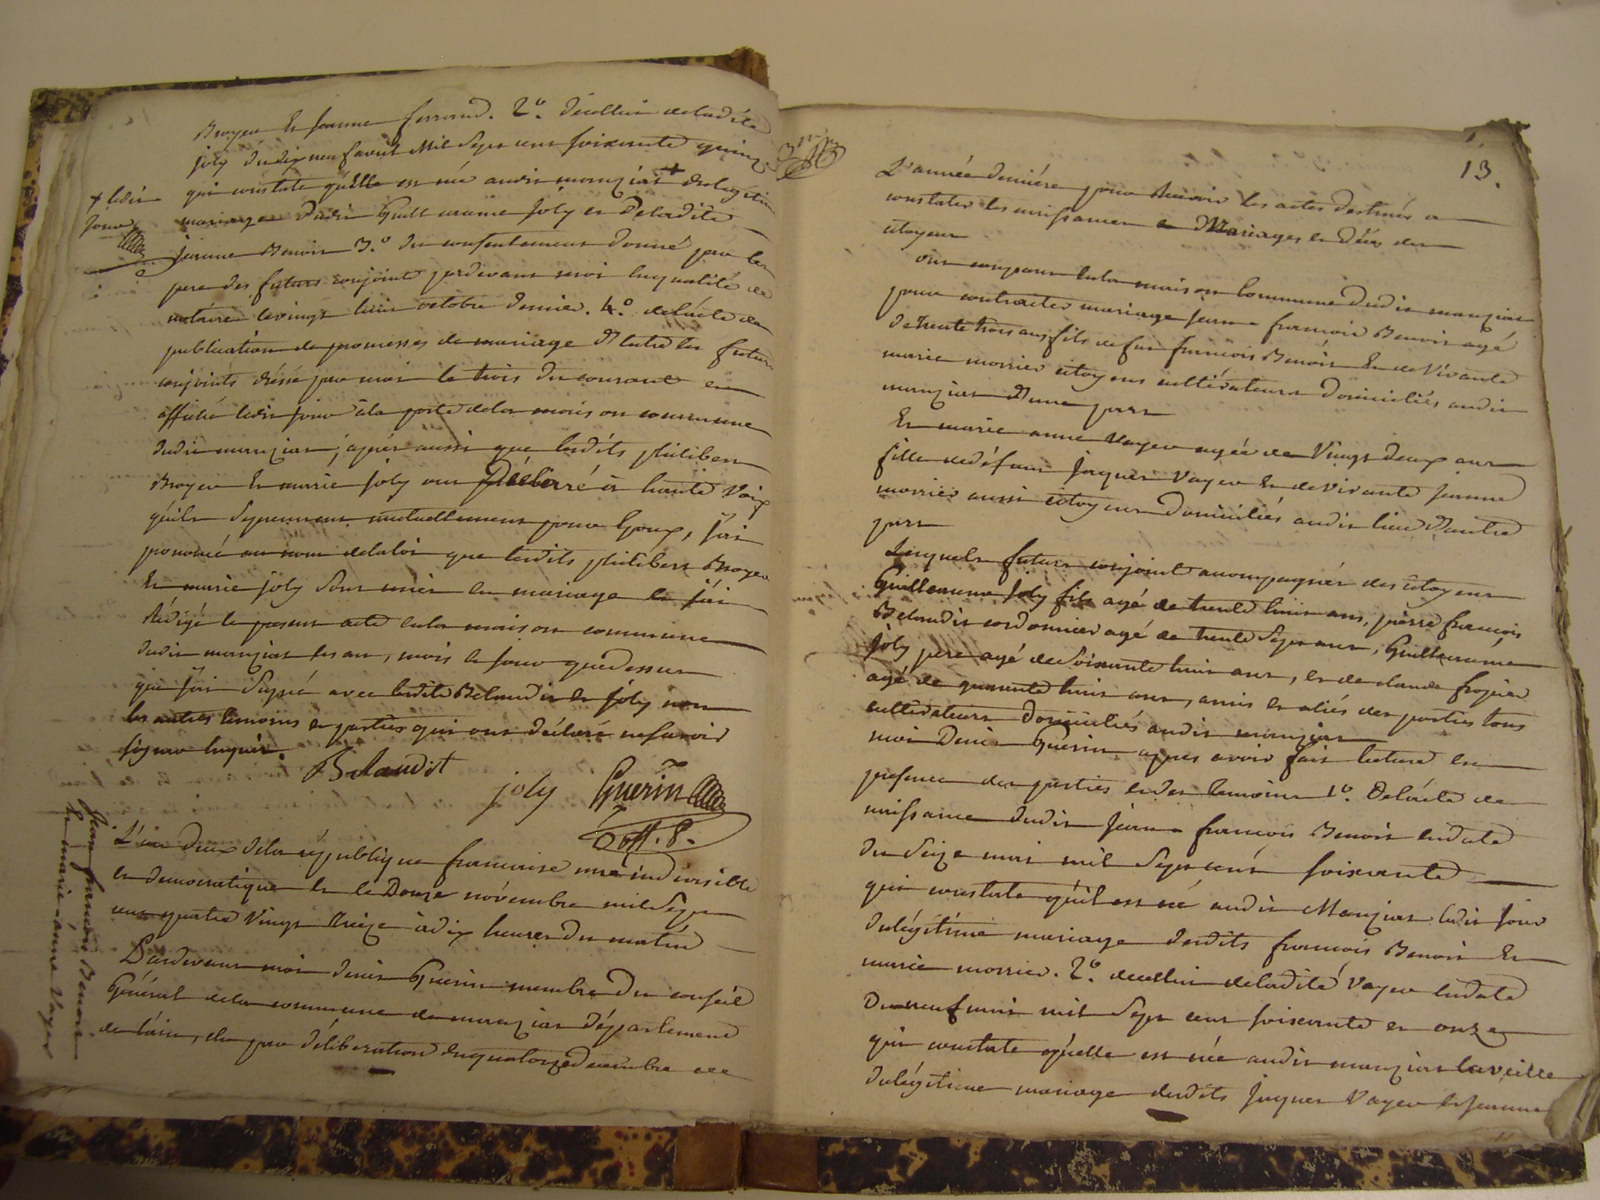 Broyer et jeanne ferrand. 2.º d'icelluie deladite
joly du dix neuf avril mil sept cent soixante quinze
qui constate qu'elle est née audit manziat + delegitime
+ ledit
jour
mariage dudit Guillaume joly et deladite
jeanne Benoit 3.º du consentement donné par les
pere des futurs conjoints pardevant moi enqualité de
notaire le vingt huit octobre dernier. 4.º delacte de
publication de promesses de mariage d'Entre les futurs
conjoints dréssé par moi le trois du courant et
affiché ledit jour à la porte de la maison commune
dudit manziat, après aussi que lesdits philibert
Broyer Et marie joly ont Déclaré à haute voix
qu'ils se prennent mutuellement pour Epoux, j'ai
prononcé au nom delaloi que lesdits philibert Broyer
Et marie joly sont unis en mariage et j'ai
Rédigé le présent acte enla maison commune
dudit manziat les an, mois et jour que dessus
que j'ai signé avec lesdits Belaudit et joly non
les autres témoins et parties qui ont déclaré ne savoir
signer enquis.
Belaudit
joly Guerin
off. p.
jean françois Benoit
Et marie-anne Vayer
L'an deux dela republique francaise une indivisible
et democratique Et le Douze novembre mil sept
cent quatre vingt treize à dix heures du matin
Pardevant moi denis Guerin membre Du conseil
Général dela commune de manziat Département
de l'ain, elu par déliberation du quatorze decembre de
13.
L'année derniere pour Recevoir les actes destinés a
constater les naissances Mariages et décès des
citoyens
ont comparu enla maison commune dudit manziat
pour contracter mariage jean-françois Benoit agé
de trente trois ans fils de feu françois Benoit Et de vivante
marie morrier citoyens cultivateurs domiciliés audit
manziat d'une part
Et marie anne Vayer agée de Vingt deux ans
fille dedéfunt Jacques Vayer Et de vivante jeanne
morrier aussi citoyens Domiciliés audit lieu d'autre
part
Lesquels futurs conjoints accompagnés des citoyens
Guillaume joly fils agé de trente huit ans, pierre françois
Belaudit cordonnier agé de trente sept ans, Guillaume
joly pere agé de soixante huit ans, et de claude froquet
agé de quarante huit ans, amis et aliés des parties tous
cultivateurs domiciliés audit manziat
moi Denis Guérin apres avoir fait lecture en
présence des parties et des témoins 1.º delacte de
naissance dudit jean-françois Benoit endate
du seize mai mil sept cent soixante
qui constate qu'il est né audit Manziat ledit jour
delégitime mariage desdits francois Benoit Et
marie morrier. 2.º decelluie deladite Vayer endate
Du neuf mai mil sept cent soixante et onze
qui constate qu'elle est née audit manziat laveille
delégitime mariage desdits Jacques Vayer et jeanne